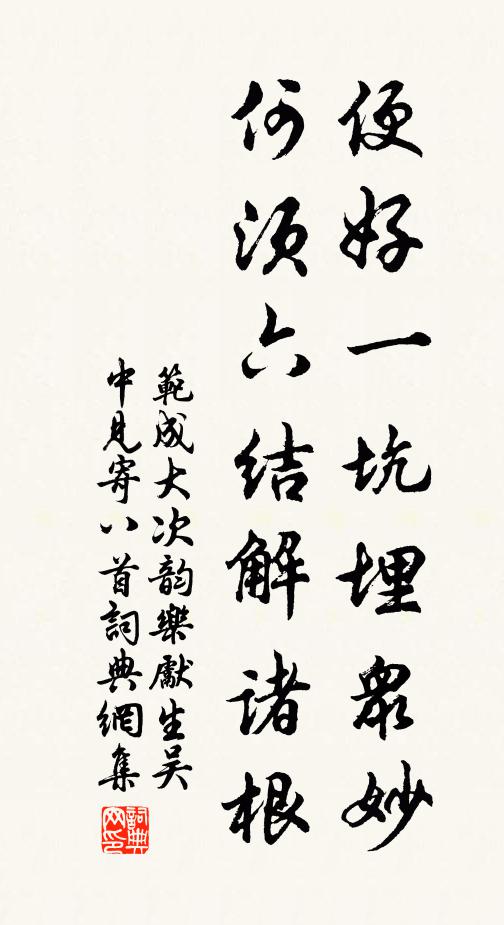 便好一坑埋眾妙
何須六結解諸根
範成大次韵樂獻生吳
中見寄八首詞典網集
詞典
网印